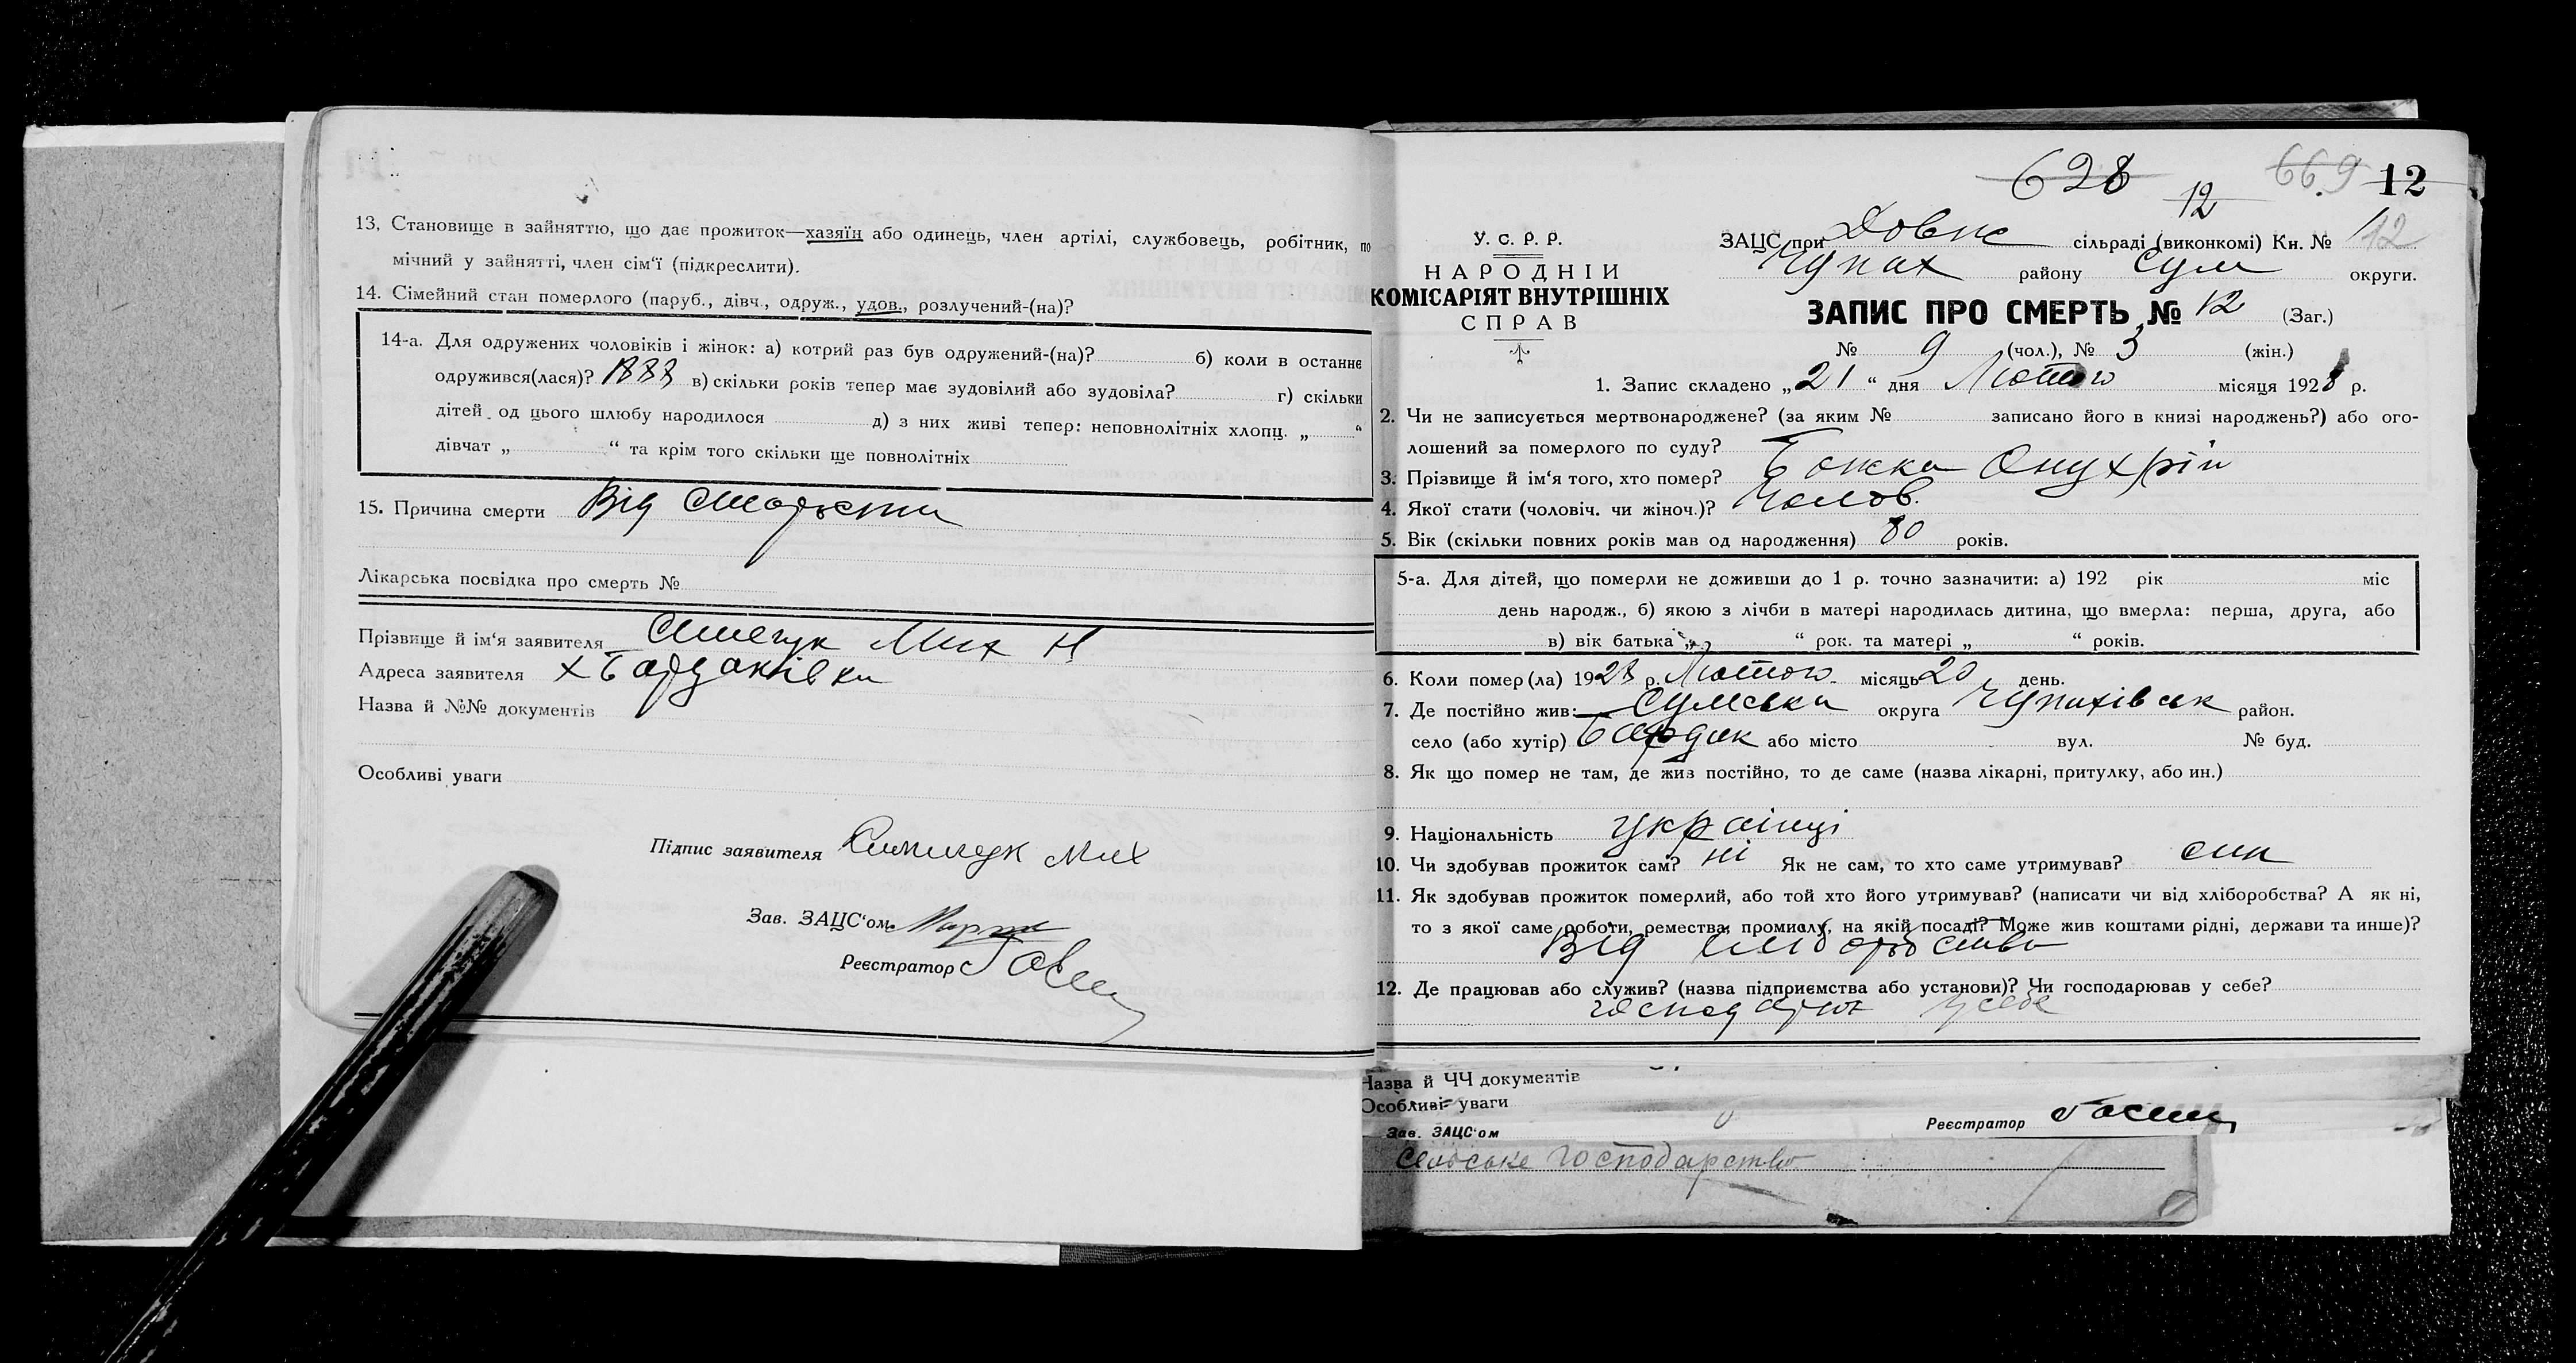 13. Становище в зайняттю, що дає прожиток—хазяїн або одинець, член артілі, службовець, робітник, по
мічний у зайнятті, член сім'ї (підкреслити).
14. Сімейний стан померлого (паруб., дівч., одруж., удов., розлучений-(на)?
14-а. Для одружених чоловіків і жінок: а) котрий раз був одружений-(на)? б) коли в останнє
одружився(лася)? 1888 в) скільки років тепер має зудовілий або зудовіла? г) скільки
дітей од цього шлюбу народилося д) з них живі тепер: неповнолітніх хлопц. „ “
дівчат „ “ та крім того скільки ще повнолітніх
15. Причина смерти Від старости
Лікарська посвідка про смерть №
Прізвище й ім'я заявителя Мих Н
Адреса заявителя х Бардаківка
Назва й №№ документів
Особливі уваги
Підпис заявителя Мих
Зав. ЗАЦС'ом
Реєстратор
628 669 12
12
У. С. Р. Р.
НАРОДНІЙ
КОМІСАРІЯТ ВНУТРІШНІХ
СПРАВ
ЗАЦС при Довж сільраді (виконкомі) Кн. № 12
Чупах району Сум округи.
ЗАПИС ПРО СМЕРТЬ № 12 (Заг.)
№ 9 (чол.), № 3 (жін.)
1. Запис складено „21“ дня Лютого місяця 1928 р.
2. Чи не записується мертвонароджене? (за яким № записано його в книзі народжень?) або ого-
лошений за померлого по суду?
3. Прізвище й ім'я того, хто помер? Божка Онухрій
4. Якої стати (чоловіч. чи жіноч.)? Чолов.
5. Вік (скільки повних років мав од народження) 80 років.
5-а. Для дітей, що померли не доживши до 1 р. точно зазначити: а) 192 рік міс
день народж., б) якою з лічби в матері народилась дитина, що вмерла: перша, друга, або
в) вік батька „ “ рок. та матері „ “ років.
6. Коли помер(ла) 1928 р. Лютого місяць 20 день.
7. Де постійно жив: Сумська округа Чупахівськ район.
село (або хутір) Бардак або місто вул. № буд.
8. Як що помер не там, де жив постійно, то де саме (назва лікарні, притулку, або ин.)
9. Національність українці
10. Чи здобував прожиток сам? ні Як не сам, то хто саме утримував? син
11. Як здобував прожиток померлий, або той хто його утримував? (написати чи від хліборобства? А як ні,
то з якої саме роботи, ремества, промислу, на якій посаді? Може жив коштами рідні, держави та инше)?
Від хліборобства
12. Де працював або служив? (назва підприємства або установи)? Чи господарював у себе?
у себе
Назва й ЧЧ документів
Особливі уваги
Зав. ЗАЦС'ом Реєстратор
Сельське господарство